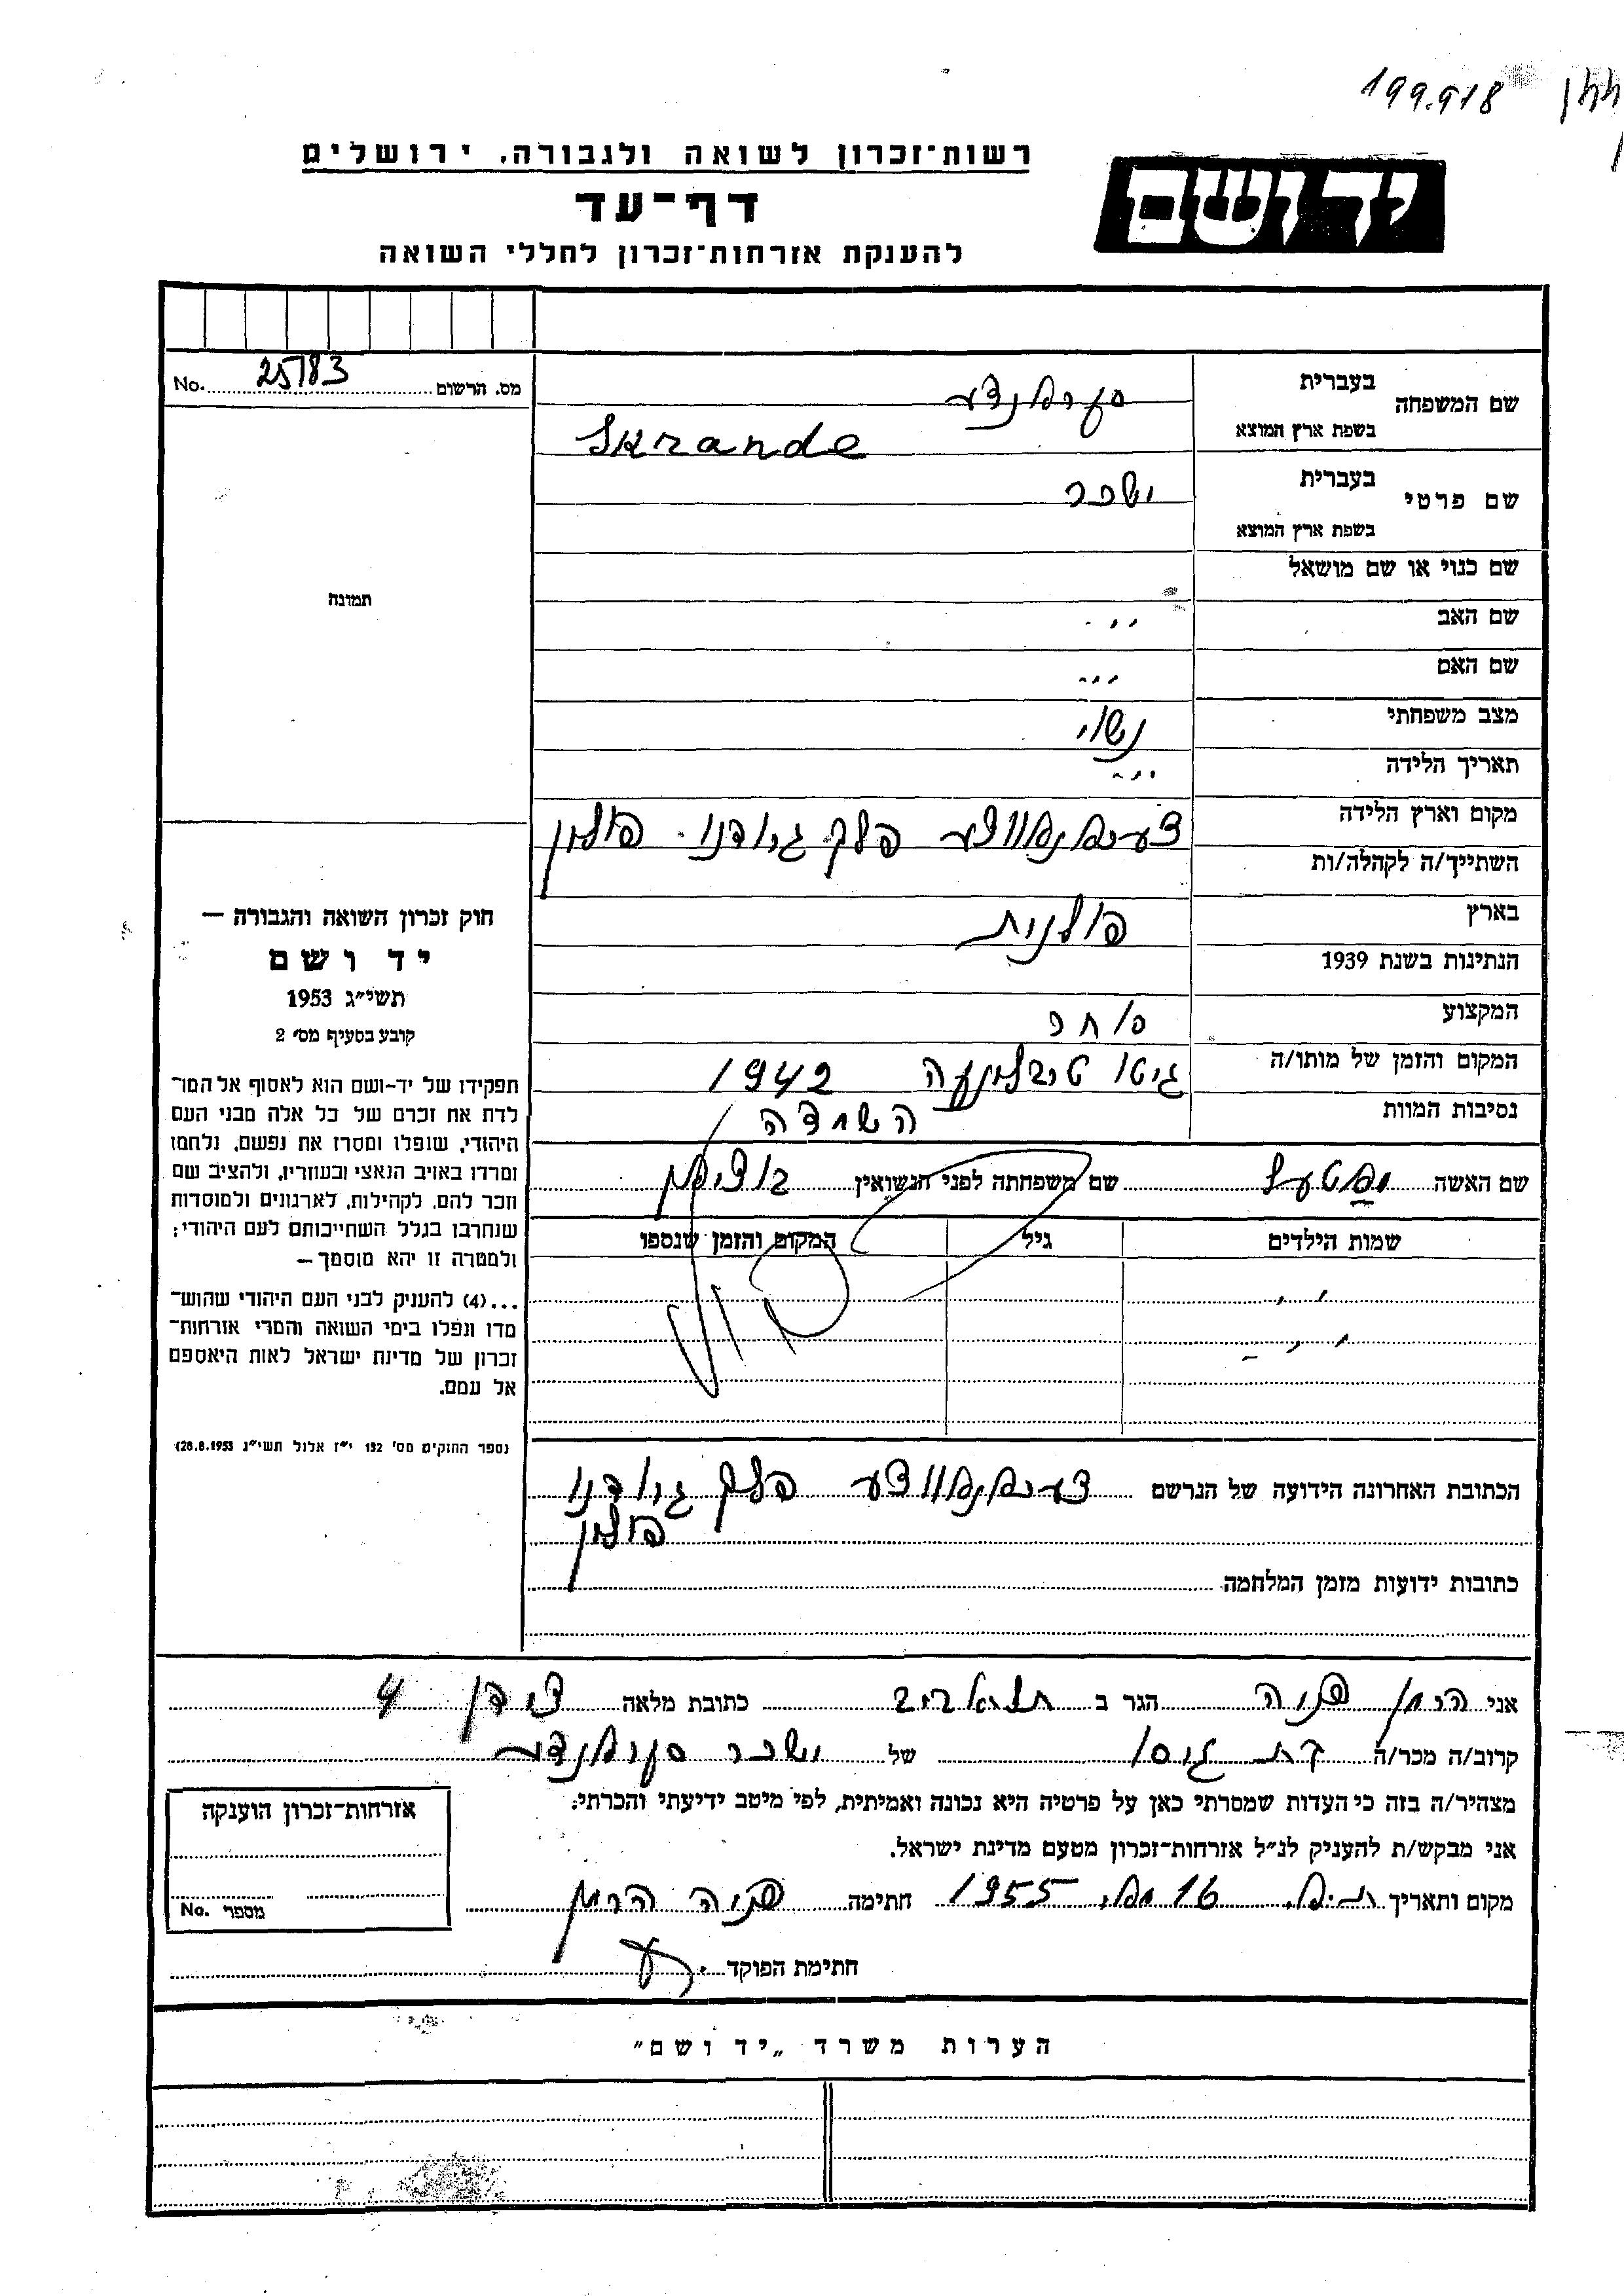 199.918
רשות־זכרון לשואה ולגבורה, ירושלים
יד ושם
דף־עד
להענקת אזרחות־זכרון לחללי השואה
מס. הרשום 25783 No.
שם המשפחה
בעברית
בשפת ארץ המוצא Skrande
שם פרטי
בעברית יששכר
בשפת ארץ המוצא
שם כנוי או שם מושאל
שם האב
שם האם
מצב משפחתי נשוי
תאריך הלידה
מקום וארץ הלידה פלך גרודנו פולין
השתייך/ה לקהלה/ות
בארץ
הנתינות בשנת 1939 פולנית
המקצוע סוחר
המקום והזמן של מותו/ה גיטו טרבלינקה 1942
נסיבות המוות השמדה
שם האשה שם משפחתה לפני הנשואין
שמות הילדים גיל המקום והזמן שנספו
הכתובת האחרונה הידועה של הנרשם פלך גרודנו
פולין
כתובות ידועות מזמן המלחמה
תמונה
חוק זכרון השואה והגבורה —
יד ושם
תשי״ג 1953
קובע בסעיף מס׳ 2
תפקידו של יד-ושם הוא לאסוף אל המו־
לדת את זכרם של כל אלה מבני העם
היהודי, שנפלו ומסרו את נפשם, נלחמו
ומרדו באויב הנאצי ובעוזריו, ולהציב שם
וזכר להם, לקהילות, לארגונים ולמוסדות
שנחרבו בגלל השתייכותם לעם היהודי;
ולמטרה זו יהא מוסמך—
...(4) להעניק לבני העם היהודי שהוש־
מדו ונפלו בימי השואה והמרי אזרחות־
זכרון של מדינת ישראל לאות היאספם
אל עמם.
נספר החוקים מס׳ 132 י״ז אלול תשי״ג 28.8.1953)
אני הימן פניה הגר ב תל אביב כתובת מלאה 4
קרוב/ה מכר/ה בת גיסו של יששכר
מצהיר/ה בזה כי העדות שמסרתי כאן על פרטיה היא נכונה ואמיתית, לפי מיטב ידיעתי והכרתי.
אני מבקש/ת להעניק לנ״ל אזרחות־זכרון מטעם מדינת ישראל.
מקום ותאריך ת.א. 16 מאי 1955 חתימה פניה הימן
חתימת הפוקד
אזרחות־זכרון הוענקה
מספר No.
הערות משרד „יד ושם״